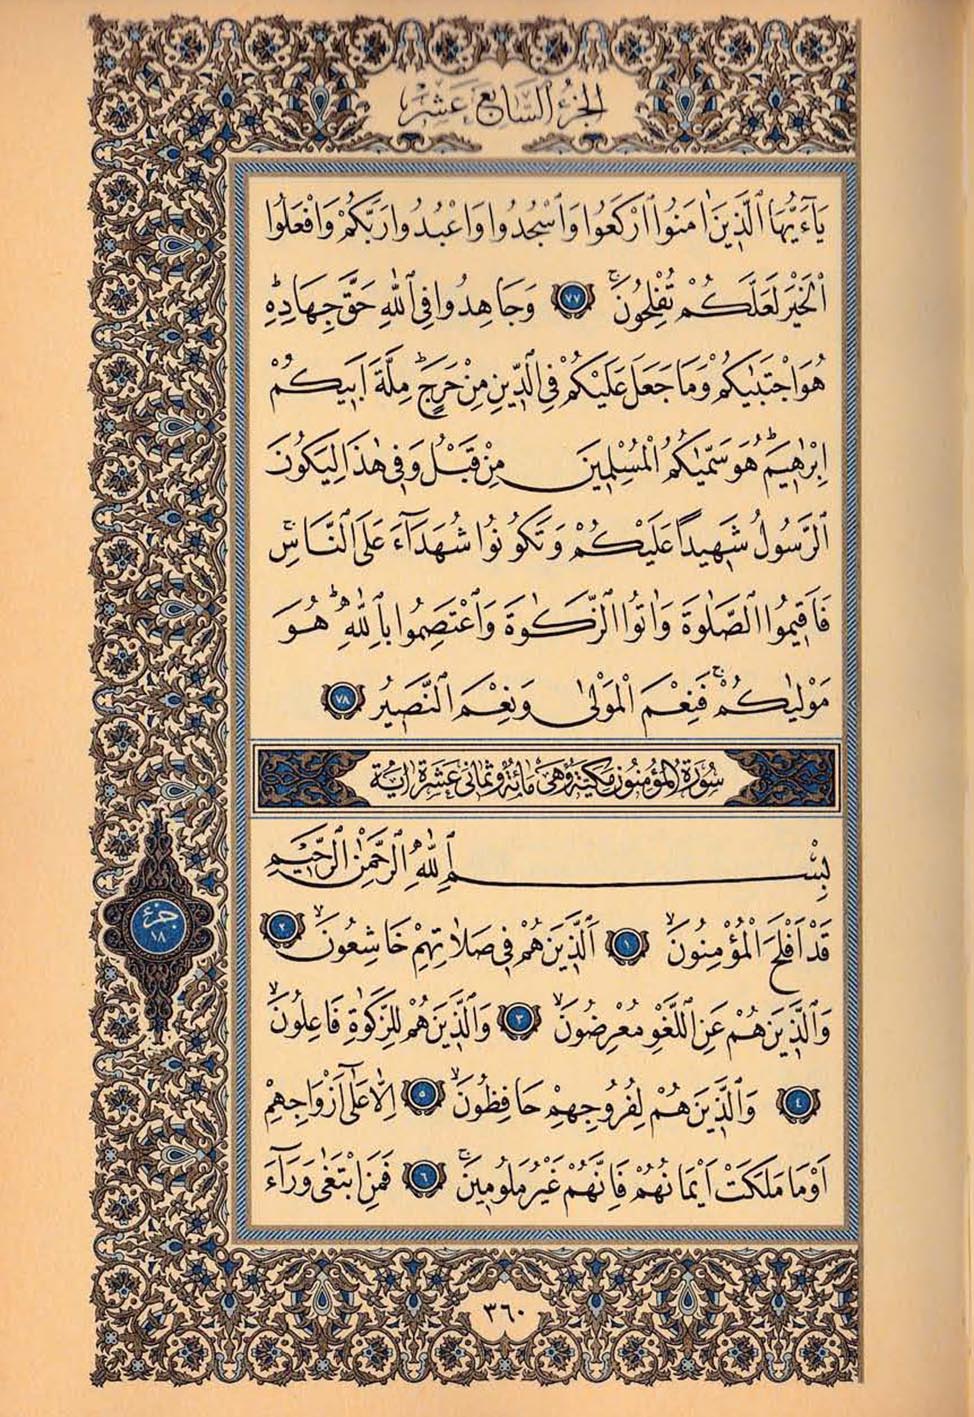 الجزء السابع عشر
يَآءَيُّهَا ٱلَّذِينَ اٰمَنُوا ٱرْكَعُوا وَٱسْجُدُوا وَاعْبُدُوا رَبَّكُمْ وَافْعَلُوا
ٱلْخَيْرَ لَعَلَّكُمْ تُفْلِحُونَ ۚ ٧٧ وَجَاهِدُوا فِي ٱللّٰهِ حَقَّ جِهَادِهِ ۗ
هُوَ اجْتَبٰيكُمْ وَمَا جَعَلَ عَلَيْكُمْ فِي ٱلدِّينِ مِنْ حَرَجٍ ۗ مِلَّةَ اَبِيكُمْ
اِبْرٰهِيمَ ۗ هُوَ سَمّٰيكُمُ الْمُسْلِمِينَ مِنْ قَبْلُ وَفِي هٰذَا لِيَكُونَ
ٱلرَّسُولُ شَهِيدًا عَلَيْكُمْ وَتَكُونُوا شُهَدَآءَ عَلَى ٱلنَّاسِ ۚ
فَاَقِيمُوا ٱلصَّلٰوةَ وَاٰتُوا ٱلزَّكٰوةَ وَٱعْتَصِمُوا بِٱللّٰهِ ۗ هُوَ
مَوْلٰيكُمْ ۚ فَنِعْمَ الْمَوْلٰى وَنِعْمَ ٱلنَّصِيرُ ٧٨
سُورَةُ الْمُؤْمِنُونَ مَكِّيَّةٌ وَهِيَ مِائَةٌ وَثَمَانِي عَشْرَةَ اٰيَةً
بِسْمِ ٱللّٰهِ ٱلرَّحْمٰنِ ٱلرَّحِيمِ
قَدْ اَفْلَحَ الْمُؤْمِنُونَ ۙ ١ اَلَّذِينَ هُمْ فِي صَلَاتِهِمْ خَاشِعُونَ ۙ ٢
وَٱلَّذِينَ هُمْ عَنِ اللَّغْوِ مُعْرِضُونَ ۙ ٣ وَٱلَّذِينَ هُمْ لِلزَّكٰوةِ فَاعِلُونَ ۙ
٤ وَٱلَّذِينَ هُمْ لِفُرُوجِهِمْ حَافِظُونَ ۙ ٥ اِلَّا عَلٰٓى اَزْوَاجِهِمْ
اَوْ مَا مَلَكَتْ اَيْمَانُهُمْ فَاِنَّهُمْ غَيْرُ مَلُومِينَ ۚ ٦ فَمَنِ ابْتَغٰى وَرَآءَ
جزء
١٨
٣٦٠